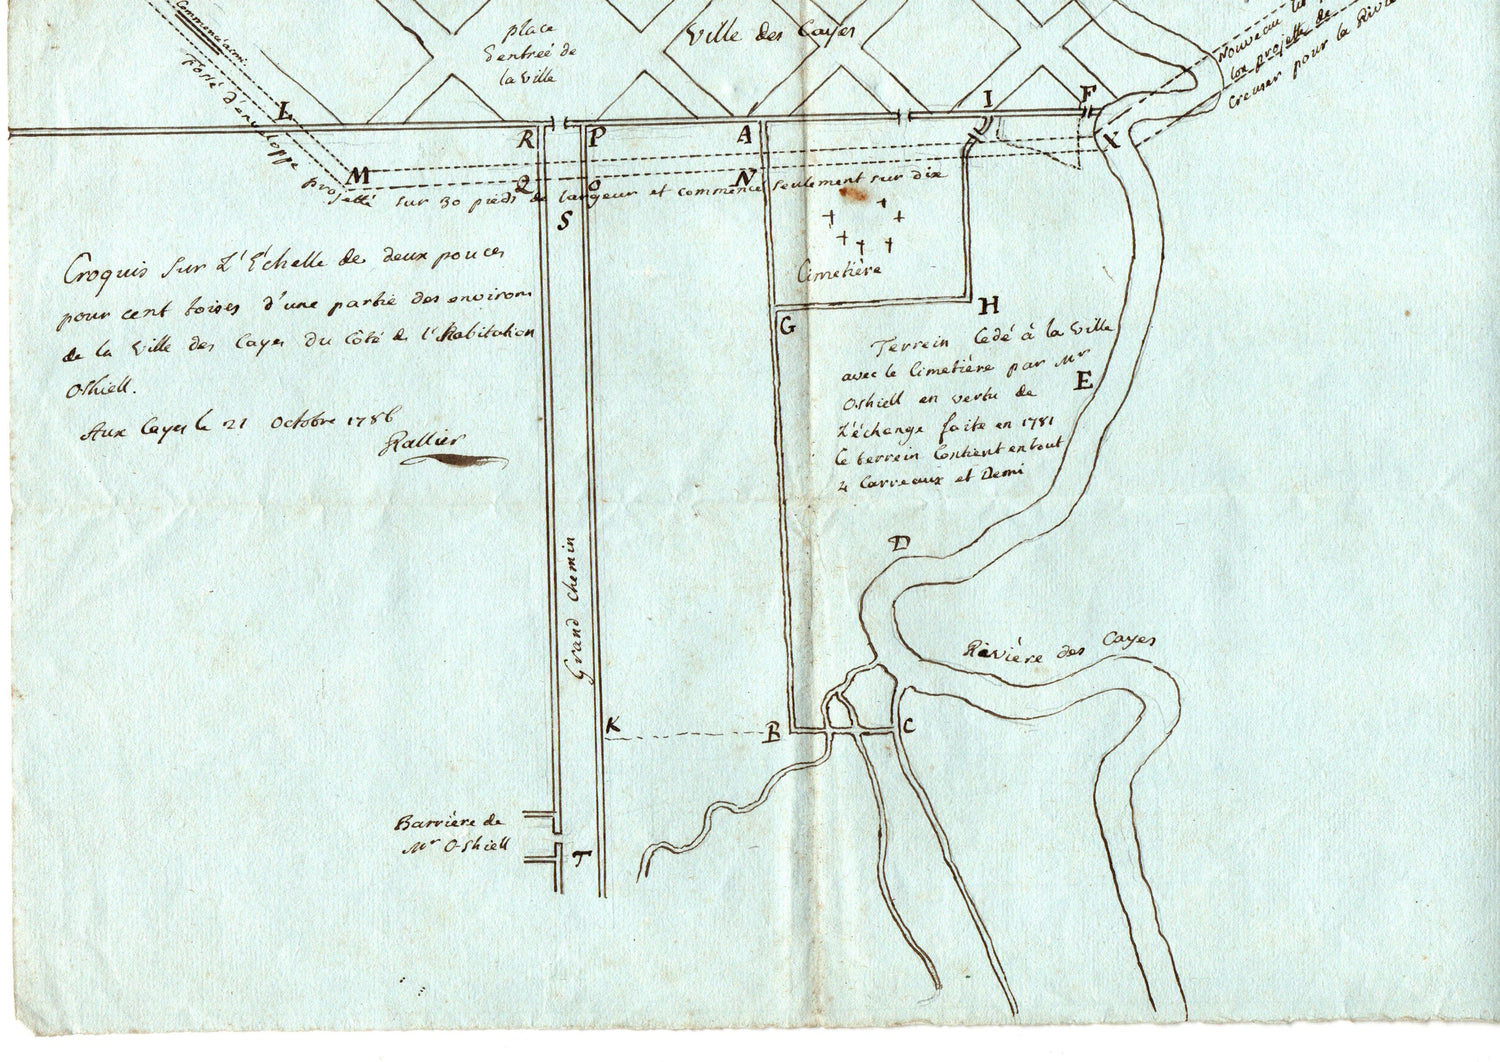 Commencé ainsi
place
d'entrée de
la ville
Ville des Cayes
Nouveau lit
projetté de
creuser pour la Riviè
Fossé d'enveloppe projetté sur 30 pieds de largeur et commencé seulement sur dix
L
R
P
A
I
F
M
Q
O
N
X
S
Cimetière
G
H
Croquis sur L'Échelle de deux pouces
pour cent toises d'une partie des environs
de la ville des Cayes du Côté de l'habitation
Oshiell.
Aux Cayes le 21 Octobre 1786
Rallier
Terrein Cedé à la Ville
avec le Cimetière par Mr
Oshiell en vertu de
L'échange faite en 1781
Ce terrein Contient en tout
4 Carreaux et Demi
E
D
Grand Chemin
Rivière des Cayes
K
B
C
Barrière de
Mr O-Shiell
T